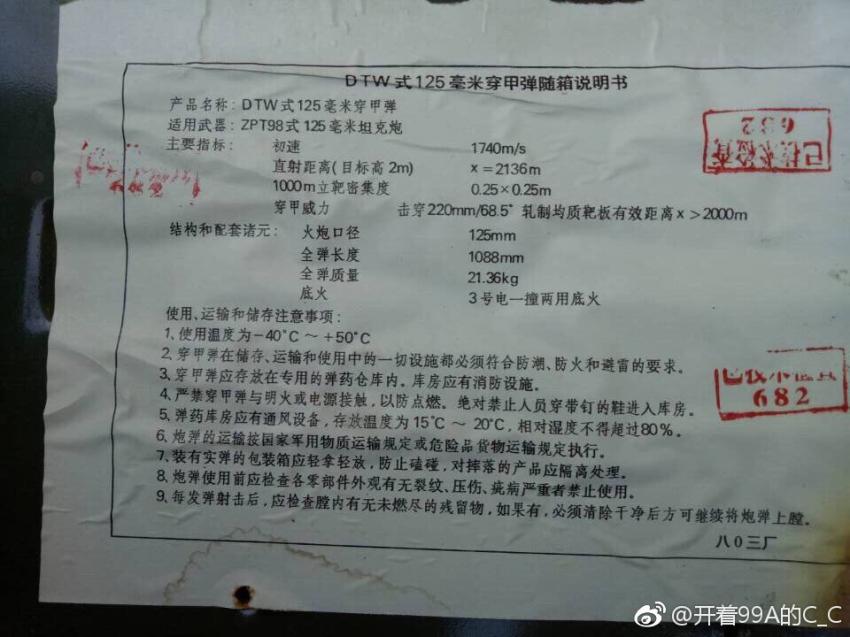 DTW式125毫米穿甲弹随箱说明书
产品名称：DTW式125毫米穿甲弹
适用武器：ZPT98式125毫米坦克炮
主要指标： 初速 1740m/s
直射距离(目标高2m) x=2136m
1000m立靶密集度 0.25×0.25m
穿甲威力 击穿220mm/68.5° 轧制均质靶板有效距离x>2000m
结构和配套诸元： 火炮口径 125mm
全弹长度 1088mm
全弹质量 21.36kg
底火 3号电一撞两用底火
使用、运输和储存注意事项：
1、使用温度为-40℃～+50℃
2、穿甲弹在储存、运输和使用中的一切设施都必须符合防潮、防火和避雷的要求。
3、穿甲弹应存放在专用的弹药仓库内。库房应有消防设施。
4、严禁穿甲弹与明火或电源接触，以防点燃。绝对禁止人员穿带钉的鞋进入库房。
5、弹药库房应有通风设备，存放温度为15℃～20℃，相对湿度不得超过80%。
6、炮弹的运输按国家军用物质运输规定或危险品货物运输规定执行。
7、装有实弹的包装箱应轻拿轻放，防止磕碰，对摔落的产品应隔离处理。
8、炮弹使用前应检查各零部件外观有无裂纹、压伤、疵病严重者禁止使用。
9、每发弹射击后，应检查膛内有无未燃尽的残留物，如果有，必须清除干净后方可继续将炮弹上膛。
八0三厂
已技术检查
682
682
682
@开着99A的C_C